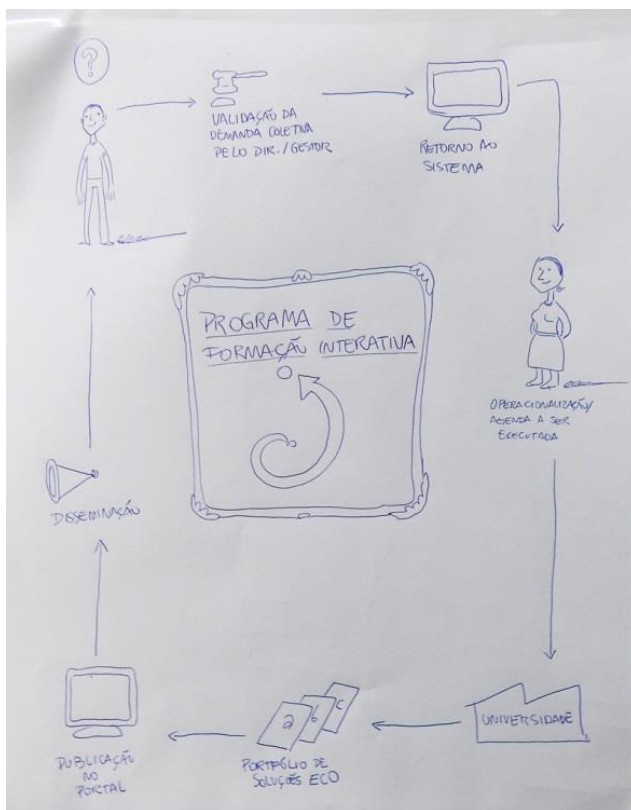 ?
VALIDAÇÃO DA
DEMANDA COLETIVA
PELO DIR./GESTOR
RETORNO AO
SISTEMA
PROGRAMA DE
FORMAÇÃO INTERATIVA
OPERACIONALIZAÇÃO/
AGENDA A SER
EXECUTADA
DISSEMINAÇÃO
UNIVERSIDADE
a b c
PORTFÓLIO DE
SOLUÇÕES ECO
PUBLICAÇÃO
NO
PORTAL